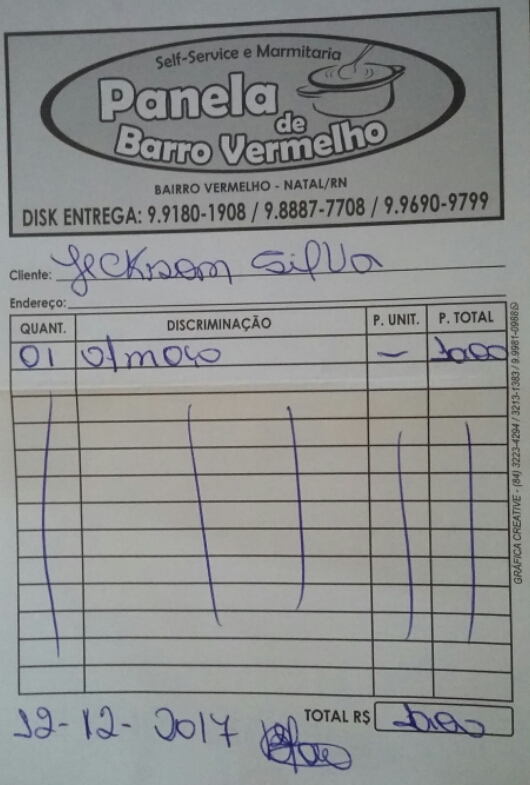 Self-Service e Marmitaria
Panela
de
Barro Vermelho
BAIRRO VERMELHO - NATAL/RN
DISK ENTREGA: 9.9180-1908 / 9.8887-7708 / 9.9690-9799
Cliente: Jeckson Silva
Endereço:
QUANT. DISCRIMINAÇÃO P. UNIT. P. TOTAL
01 almoço —
12-12-2017 TOTAL R$
GRÁFICA CREATIVE - (84) 3223-4294 / 3213-1383 / 9.9981-0968